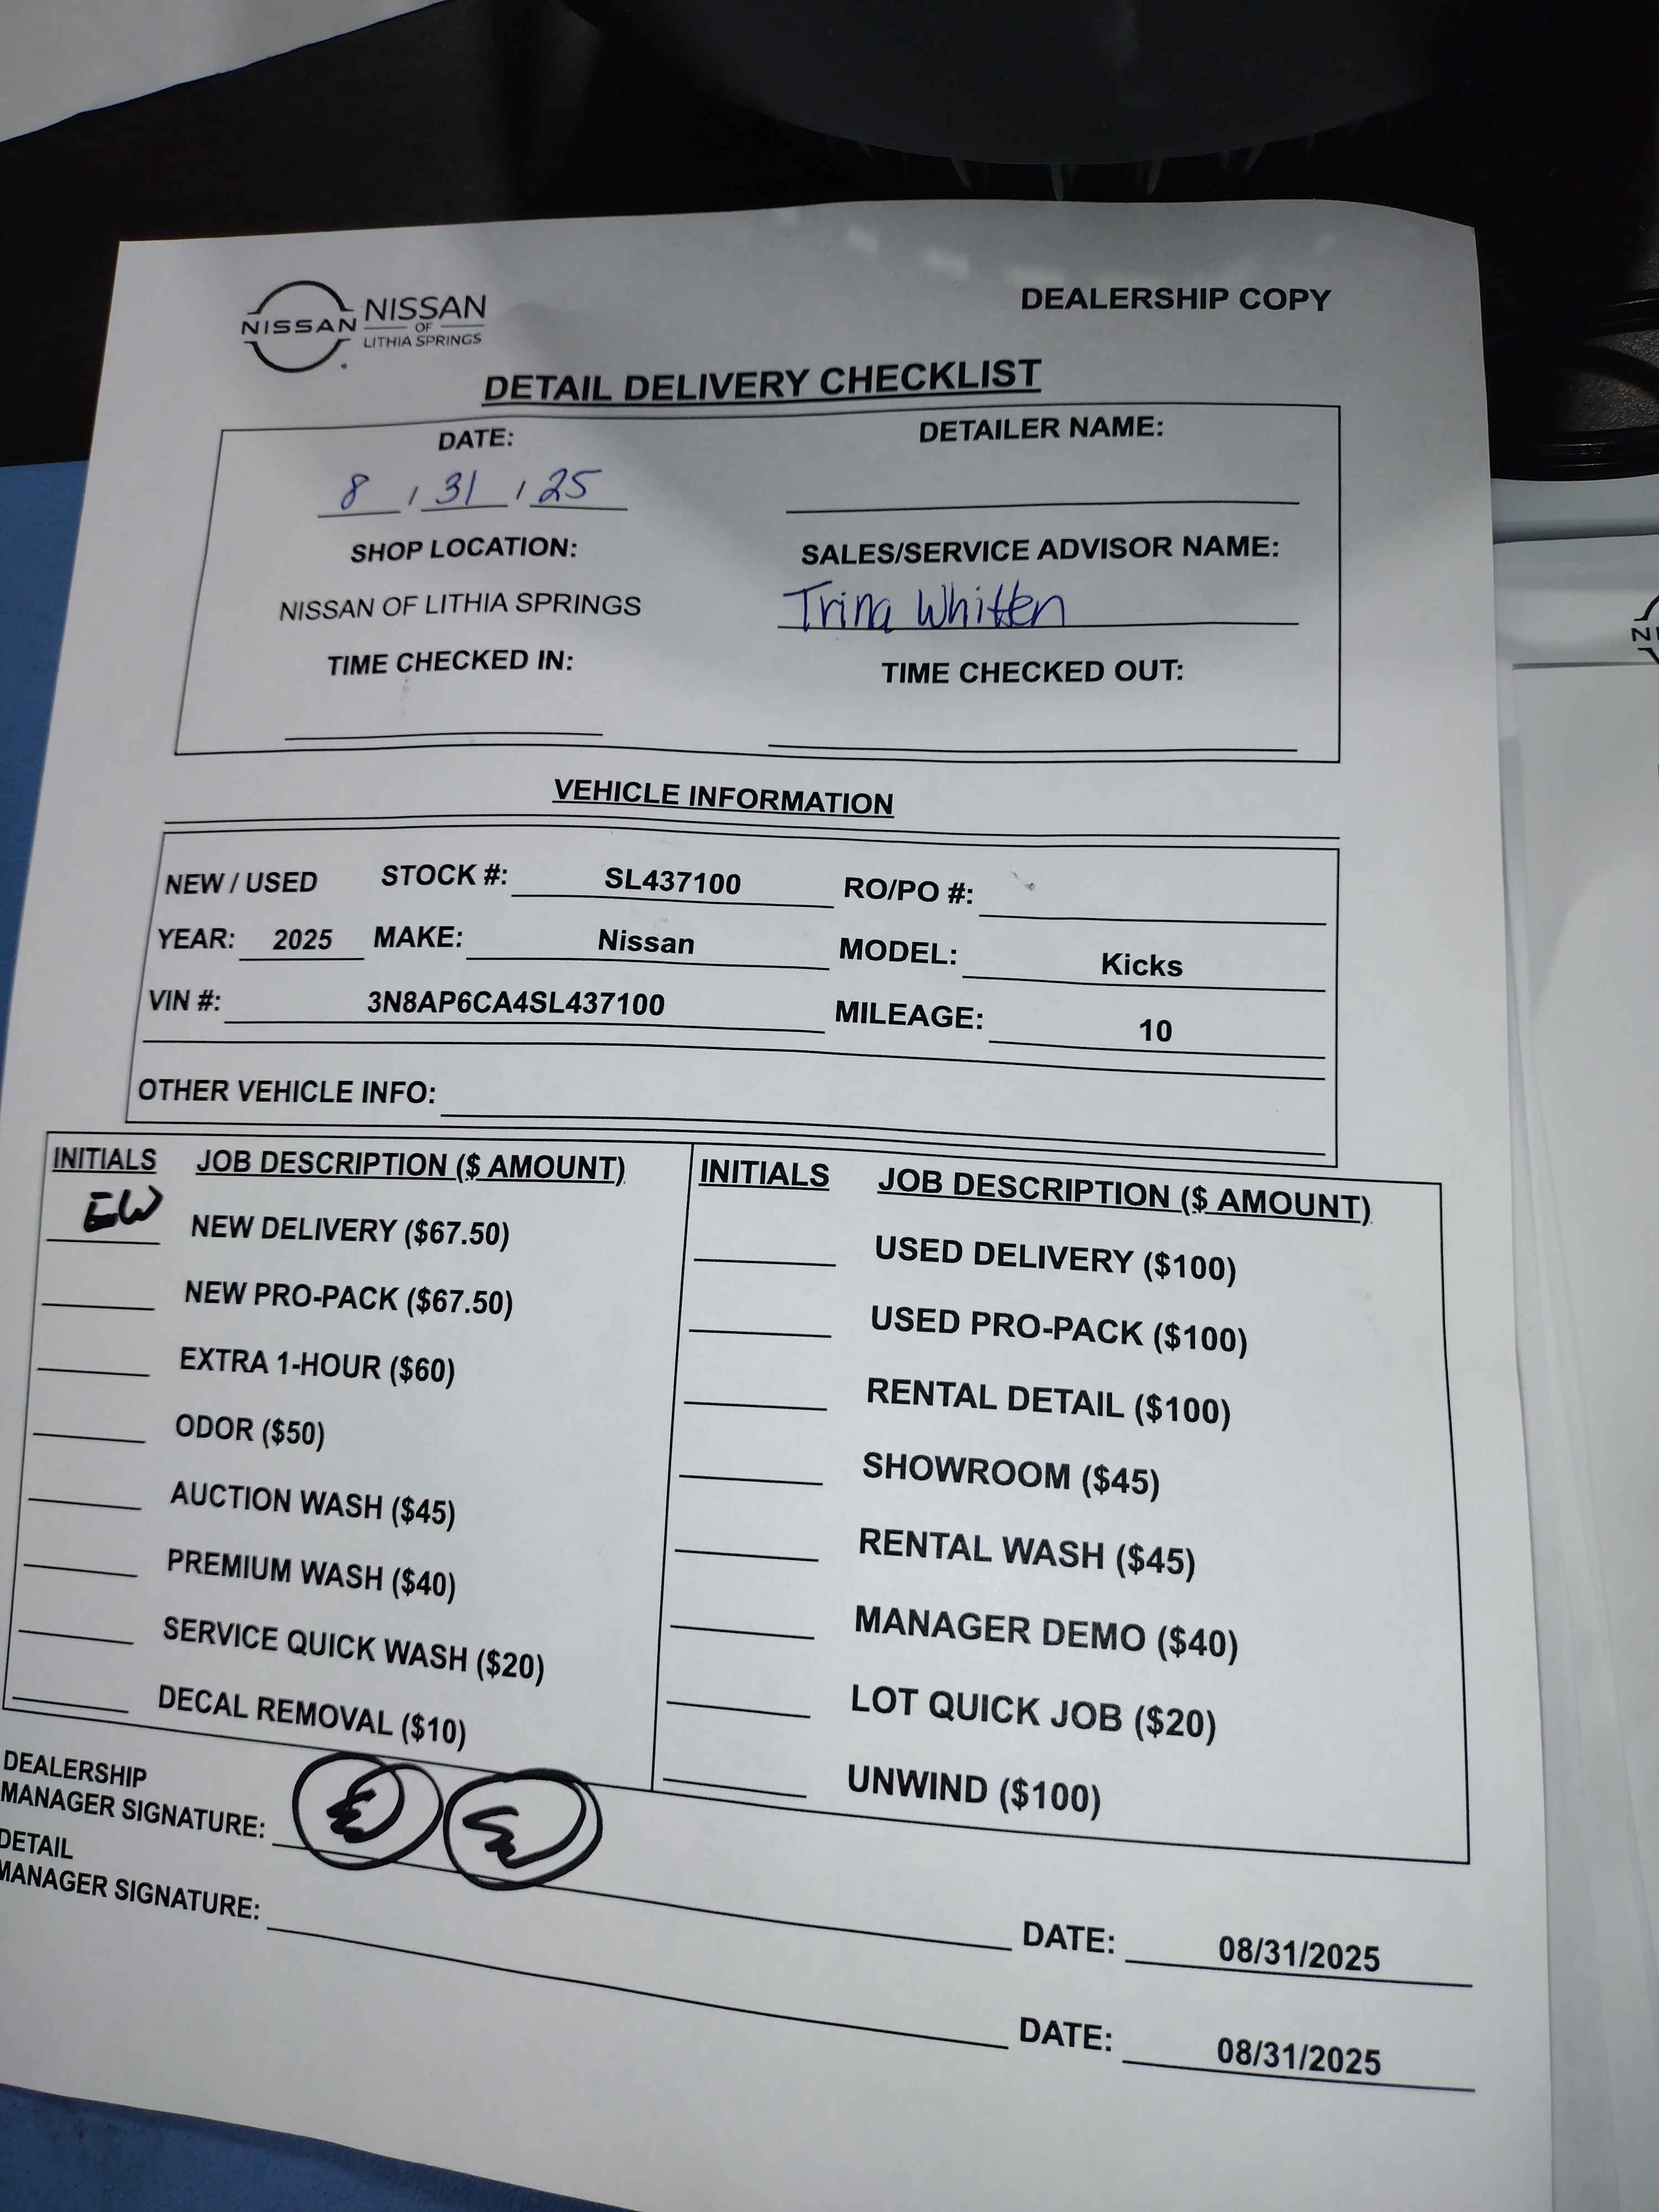 NISSAN
NISSAN
OF
LITHIA SPRINGS
DEALERSHIP COPY
DETAIL DELIVERY CHECKLIST
DATE:
8 / 31 / 25
DETAILER NAME:
SHOP LOCATION:
NISSAN OF LITHIA SPRINGS
SALES/SERVICE ADVISOR NAME:
Trina Whitten
TIME CHECKED IN:
TIME CHECKED OUT:
VEHICLE INFORMATION
NEW / USED STOCK #: SL437100 RO/PO #:
YEAR: 2025 MAKE: Nissan MODEL: Kicks
VIN #: 3N8AP6CA4SL437100 MILEAGE: 10
OTHER VEHICLE INFO:
INITIALS JOB DESCRIPTION ($ AMOUNT)
EW NEW DELIVERY ($67.50)
NEW PRO-PACK ($67.50)
EXTRA 1-HOUR ($60)
ODOR ($50)
AUCTION WASH ($45)
PREMIUM WASH ($40)
SERVICE QUICK WASH ($20)
DECAL REMOVAL ($10)
INITIALS JOB DESCRIPTION ($ AMOUNT)
USED DELIVERY ($100)
USED PRO-PACK ($100)
RENTAL DETAIL ($100)
SHOWROOM ($45)
RENTAL WASH ($45)
MANAGER DEMO ($40)
LOT QUICK JOB ($20)
UNWIND ($100)
DEALERSHIP
MANAGER SIGNATURE:
DATE: 08/31/2025
DETAIL
MANAGER SIGNATURE:
DATE: 08/31/2025